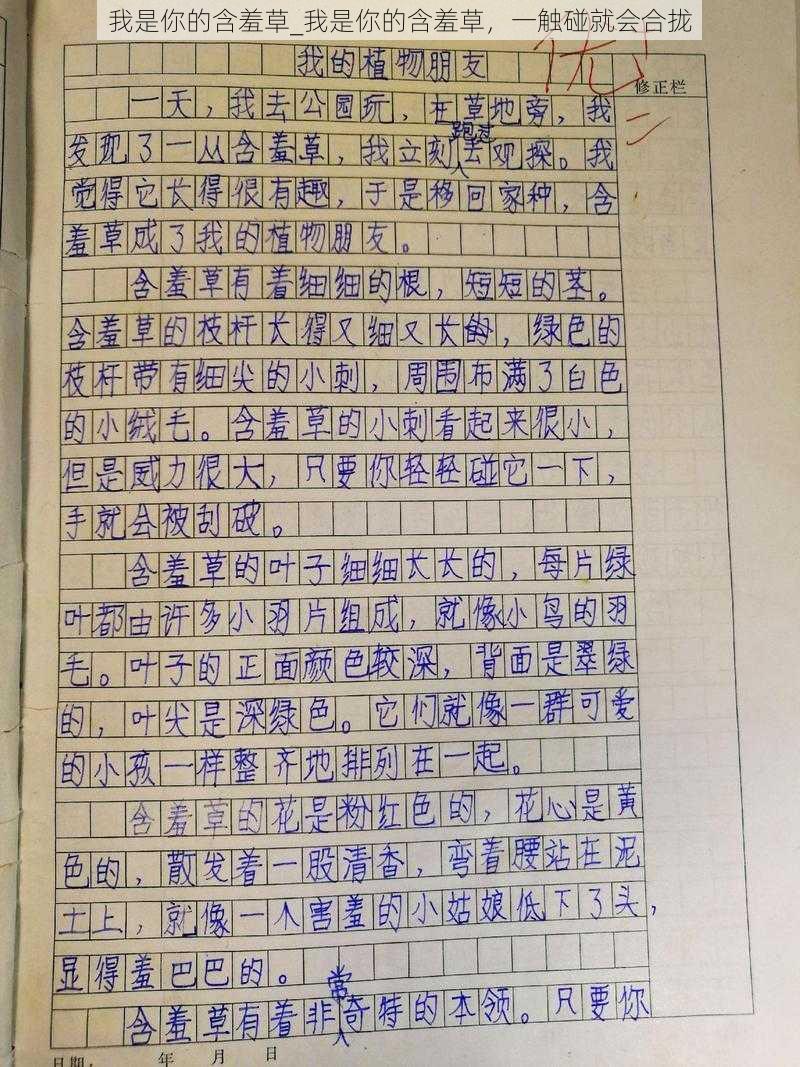 我是你的含羞草_我是你的含羞草，一触碰就会合拢
我的植物朋友
优
修正栏
一天，我去公园玩，在草地旁，我
发现了一丛含羞草，我立刻跑过去观探。我
觉得它长得很有趣，于是移回家种，含
羞草成了我的植物朋友。
含羞草有着细细的根，短短的茎。
含羞草的枝杆长得又细又长，绿色的
枝杆带有细尖的小刺，周围布满了白色
的小绒毛。含羞草的小刺看起来很小，
但是威力很大，只要你轻轻碰它一下，
手就会被刮破。
含羞草的叶子细细长长的，每片绿
叶都由许多小羽片组成，就像小鸟的羽
毛。叶子的正面颜色较深，背面是翠绿
的，叶尖是深绿色。它们就像一群可爱
的小孩一样整齐地排列在一起。
含羞草的花是粉红色的，花心是黄
色的，散发着一股清香，弯着腰站在泥
土上，就像一个害羞的小姑娘低下了头，
显得羞巴巴的。
含羞草有着非常奇特的本领。只要你
日期： 年 月 日